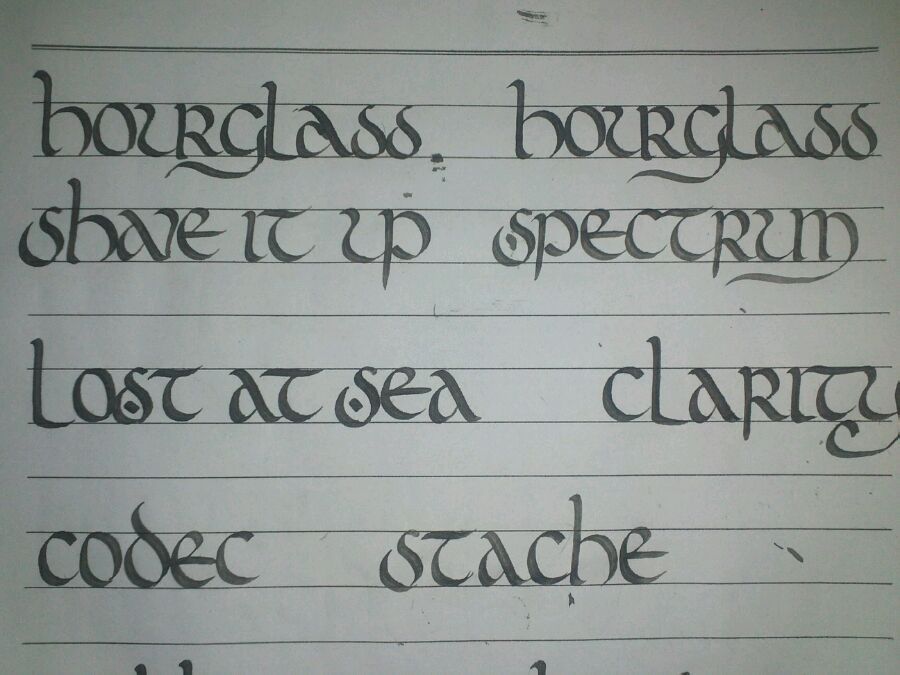 hourglass. hourglass
shave it up spectrum
lost at sea clarity
codec stache